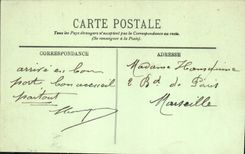 CARTE POSTALE
Tous les Pays étrangers n'acceptent pas la Correspondance au recto.
(Se renseigner à la Poste)
CORRESPONDANCE
ADRESSE
arrivé en bon
port bon accueil
partout
Madame
2 Bd de Paris
Marseille